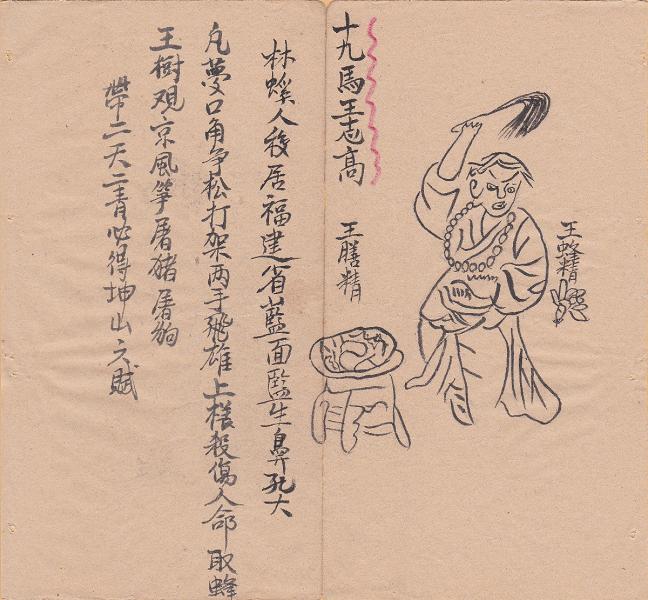 十九馬王志高
王蜂精
王膳精
林螇人移居福建省藍面監生鼻孔大
凡夢口角爭松打架两手飛雄上樣殺傷人命取蜂
王樹观京風箏屠猪屠狗
帶二天二青必得坤山之賦